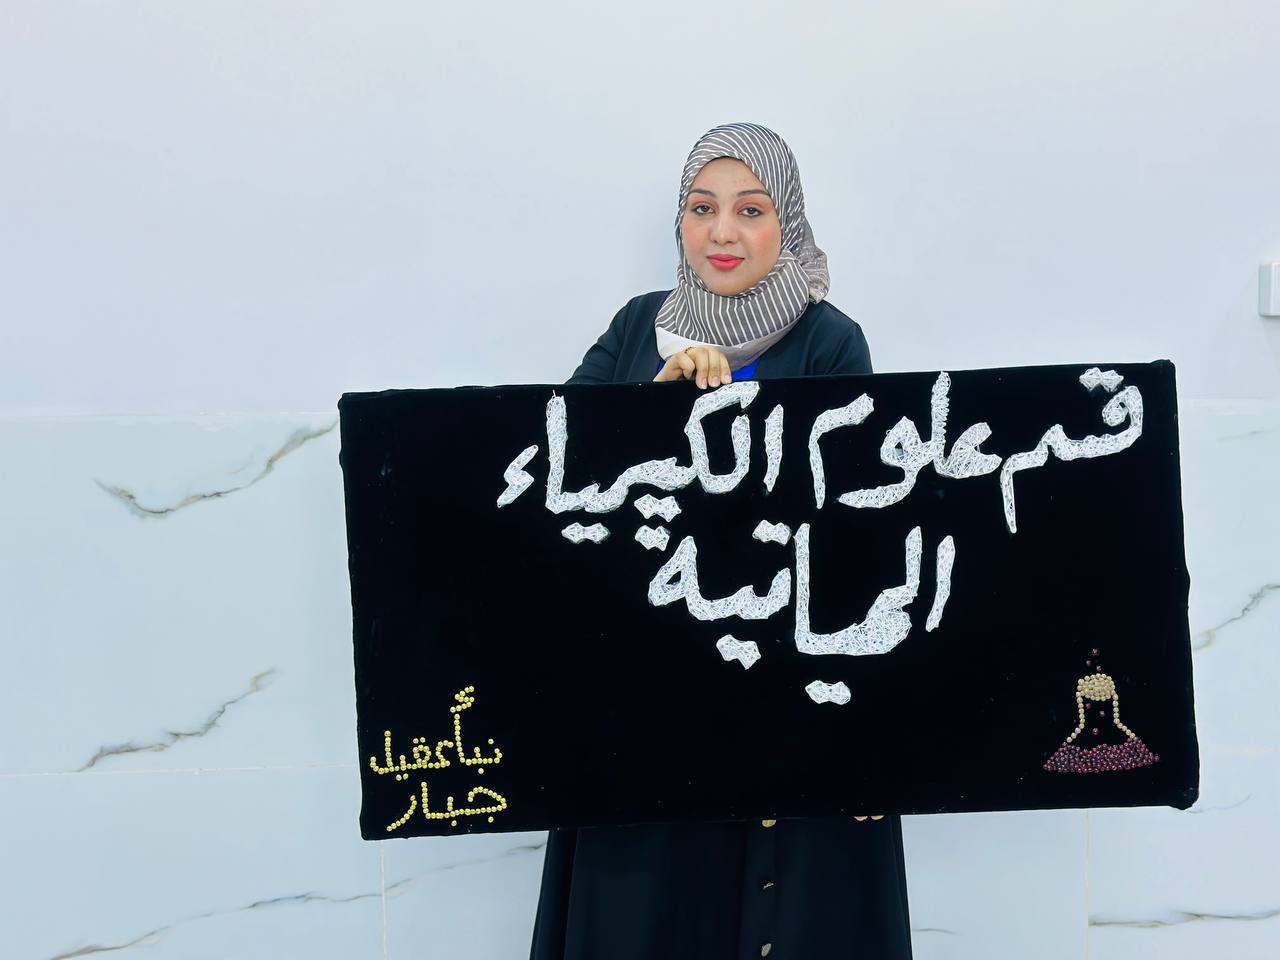 قسم علوم الكيمياء
الحياتية
نبأ عقيل
جبار